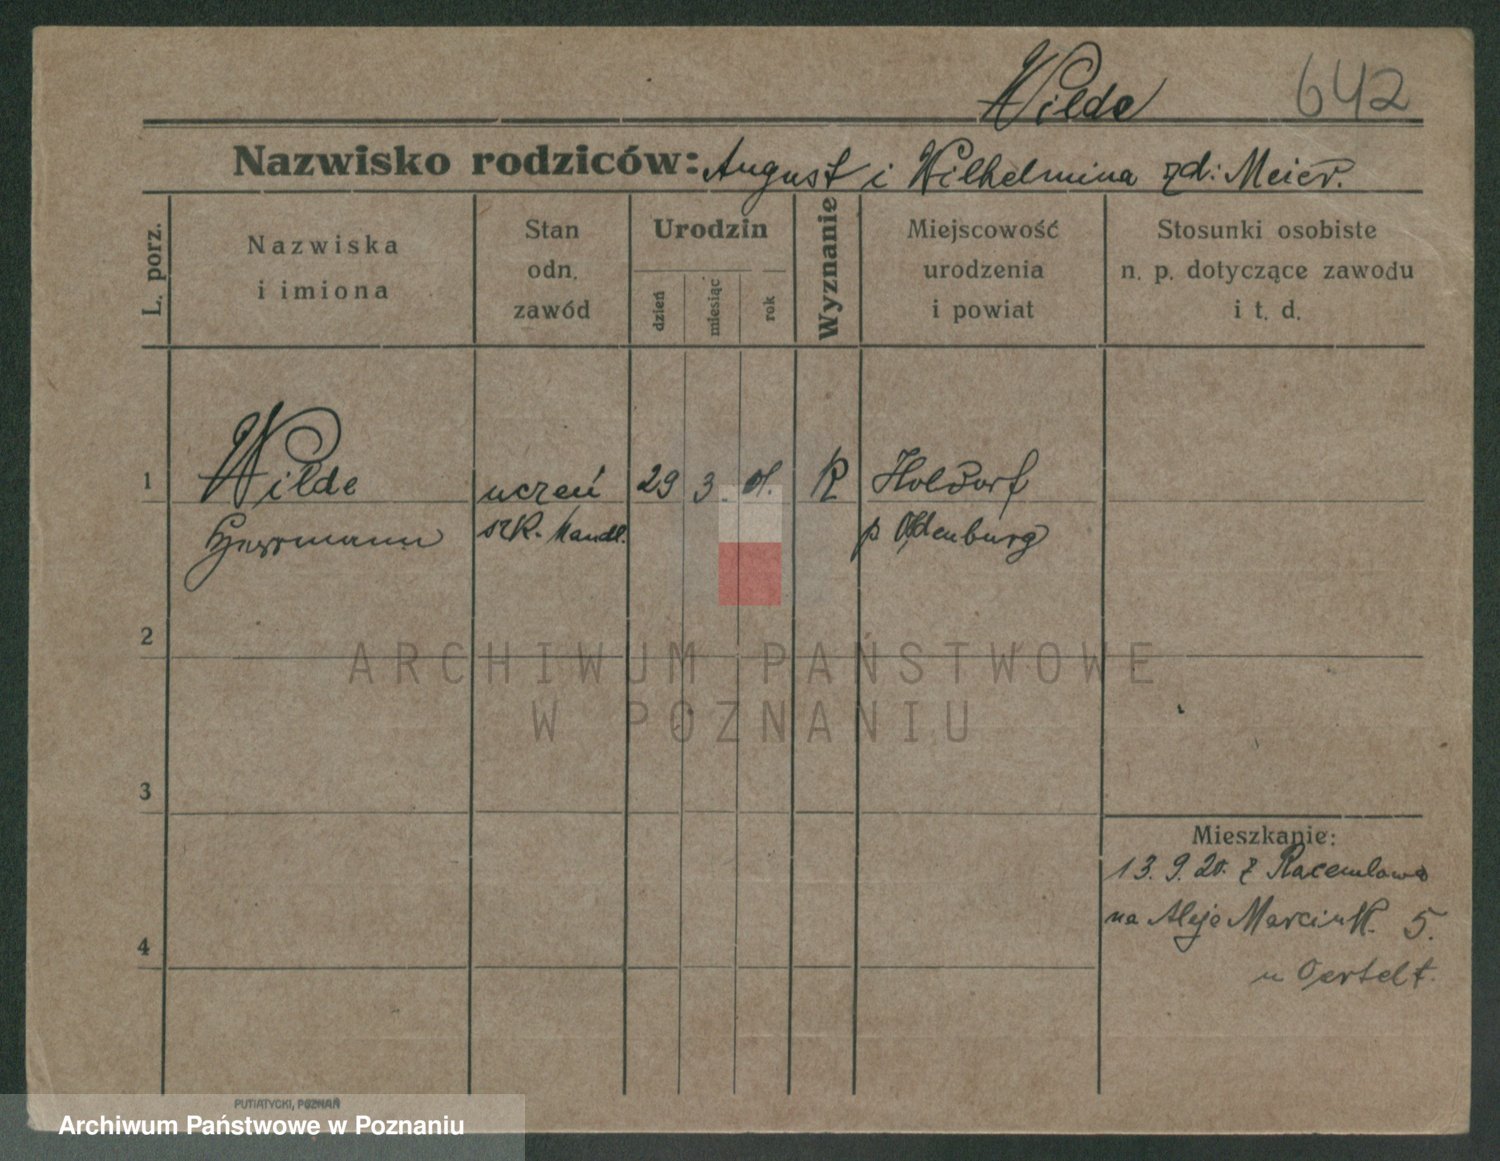 Wilde 642
Nazwisko rodziców: August i Wilhelmina zd: Meier.
L. porz.
Nazwiska
i imiona
Stan
odn.
zawód
Urodzin
dzień
miesiąc
rok
Wyznanie
Miejscowość
urodzenia
i powiat
Stosunki osobiste
n. p. dotyczące zawodu
i t. d.
1 Wilde uczeń 29 3. 01. R Holdorf
Herrmann szk. handl. p Oldenburg
2
ARCHIWUM PAŃSTWOWE
W POZNANIU
3
Mieszkanie:
13. 9. 20. z
na Aleje Marcink. 5.
4
u Oertelt.
PUTIATYCKI, POZNAŃ
Archiwum Państwowe w Poznaniu